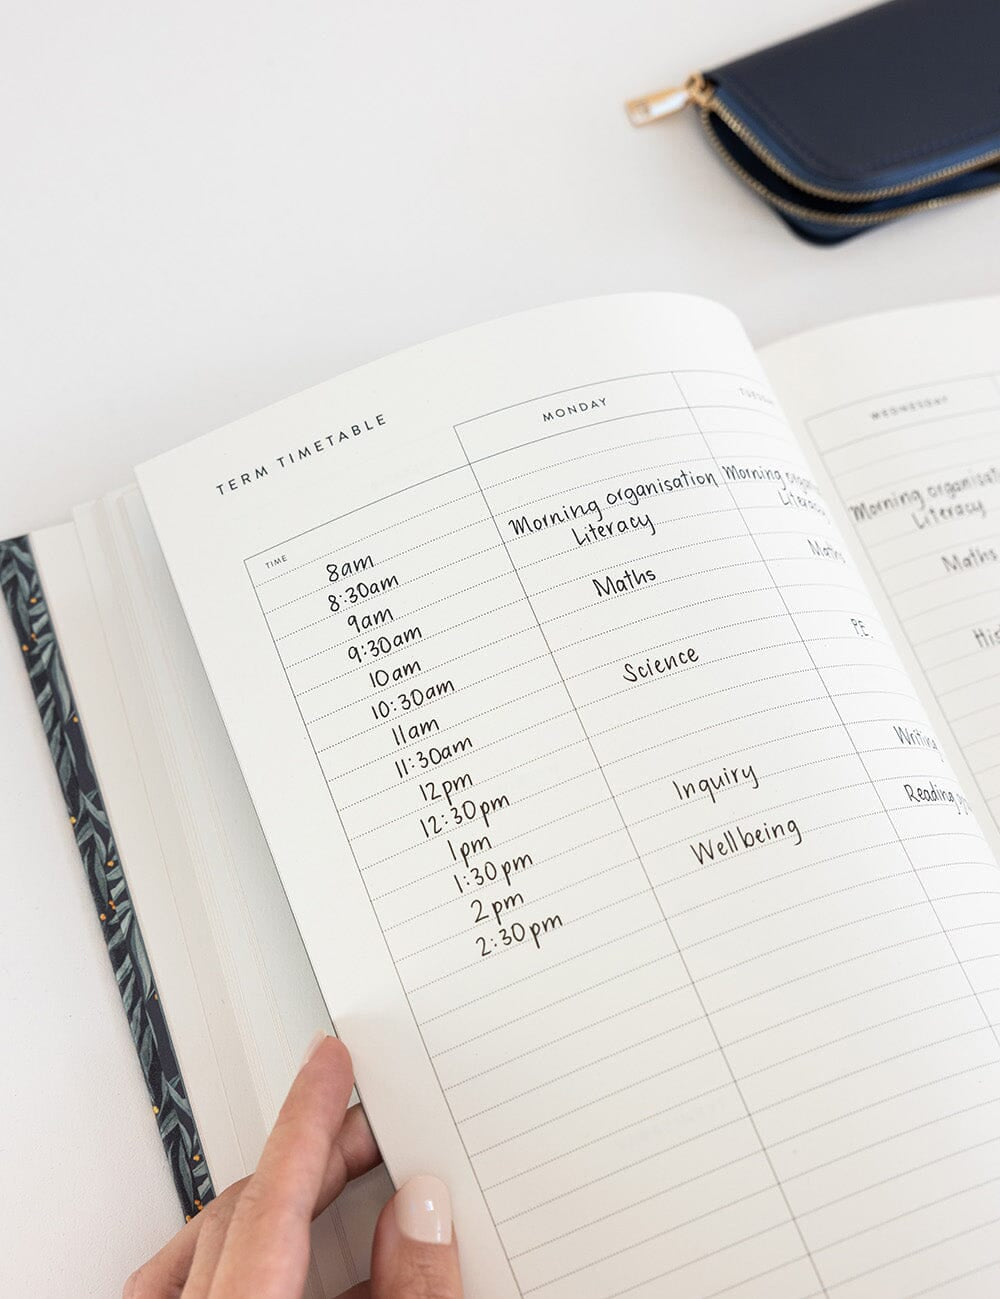 TERM TIMETABLE
MONDAY
TIME
8am
8:30am
9am
9:30am
10am
10:30am
11am
11:30am
12pm
12:30pm
1pm
1:30pm
2pm
2:30pm
Morning organisation
Literacy
Maths
Science
Inquiry
Wellbeing
Morning
Literacy
Maths
P.E.
Writing
Reading
WEDNESDAY
Morning
Literacy
Maths